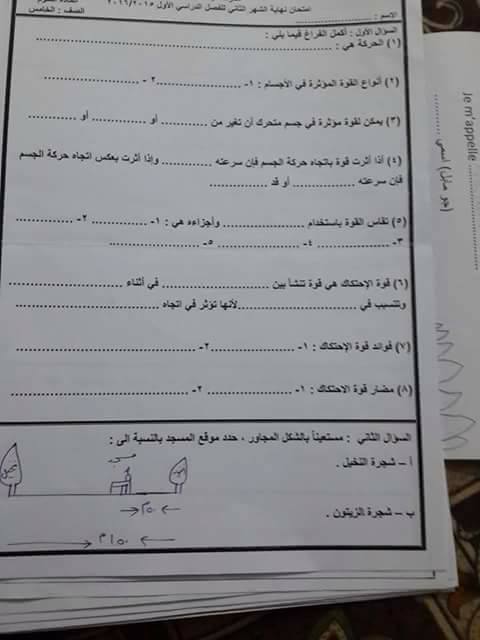 امتحان نهاية الشهر الثاني للفصل الدراسي الأول ٢٠١٦/٢٠١٥
الصف : الخامس
الاسم : ............
السؤال الأول : أكمل الفراغ فيما يلي :
(١) الحركة هي : ............
(٢) أنواع القوة المؤثرة في الأجسام : ١- ............ ٢- ............
(٣) يمكن لقوة مؤثرة في جسم متحرك أن تغير من ............ أو ............ أو ............
(٤) أذا أثرت قوة باتجاه حركة الجسم فإن سرعته ............ وإذا أثرت بعكس اتجاه حركة الجسم
فإن سرعته ............ أو قد ............
(٥) تقاس القوة باستخدام ............ وأجزاءه هي : ١- ............ ٢- ............
٣- ............ ٤- ............ ٥- ............
(٦) قوة الإحتكاك هي قوة تنشأ بين ............ في أثناء ............
وتتسبب في ............ لأنها تؤثر في اتجاه ............
(٧) فوائد قوة الإحتكاك : ١- ............ ٢- ............
(٨) مضار قوة الاحتكاك : ١- ............ ٢- ............
السؤال الثاني : مستعيناً بالشكل المجاور ، حدد موقع المسجد بالنسبة الى :
أ – شجرة النخيل .
ب – شجرة الزيتون .
٥٠ م
١٥٠ م
Je m'appelle ............
(جو مابل) اسمي ............